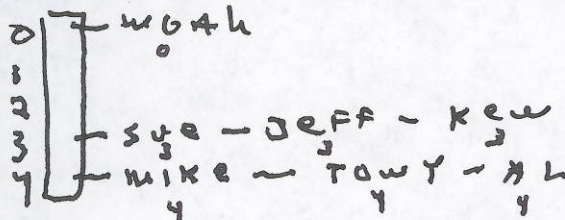 0 - NOAh
0
1
2
3 - Sue - Jeff - Ken
3 3 3
4 - Mike - TONY - AL
4 4 4